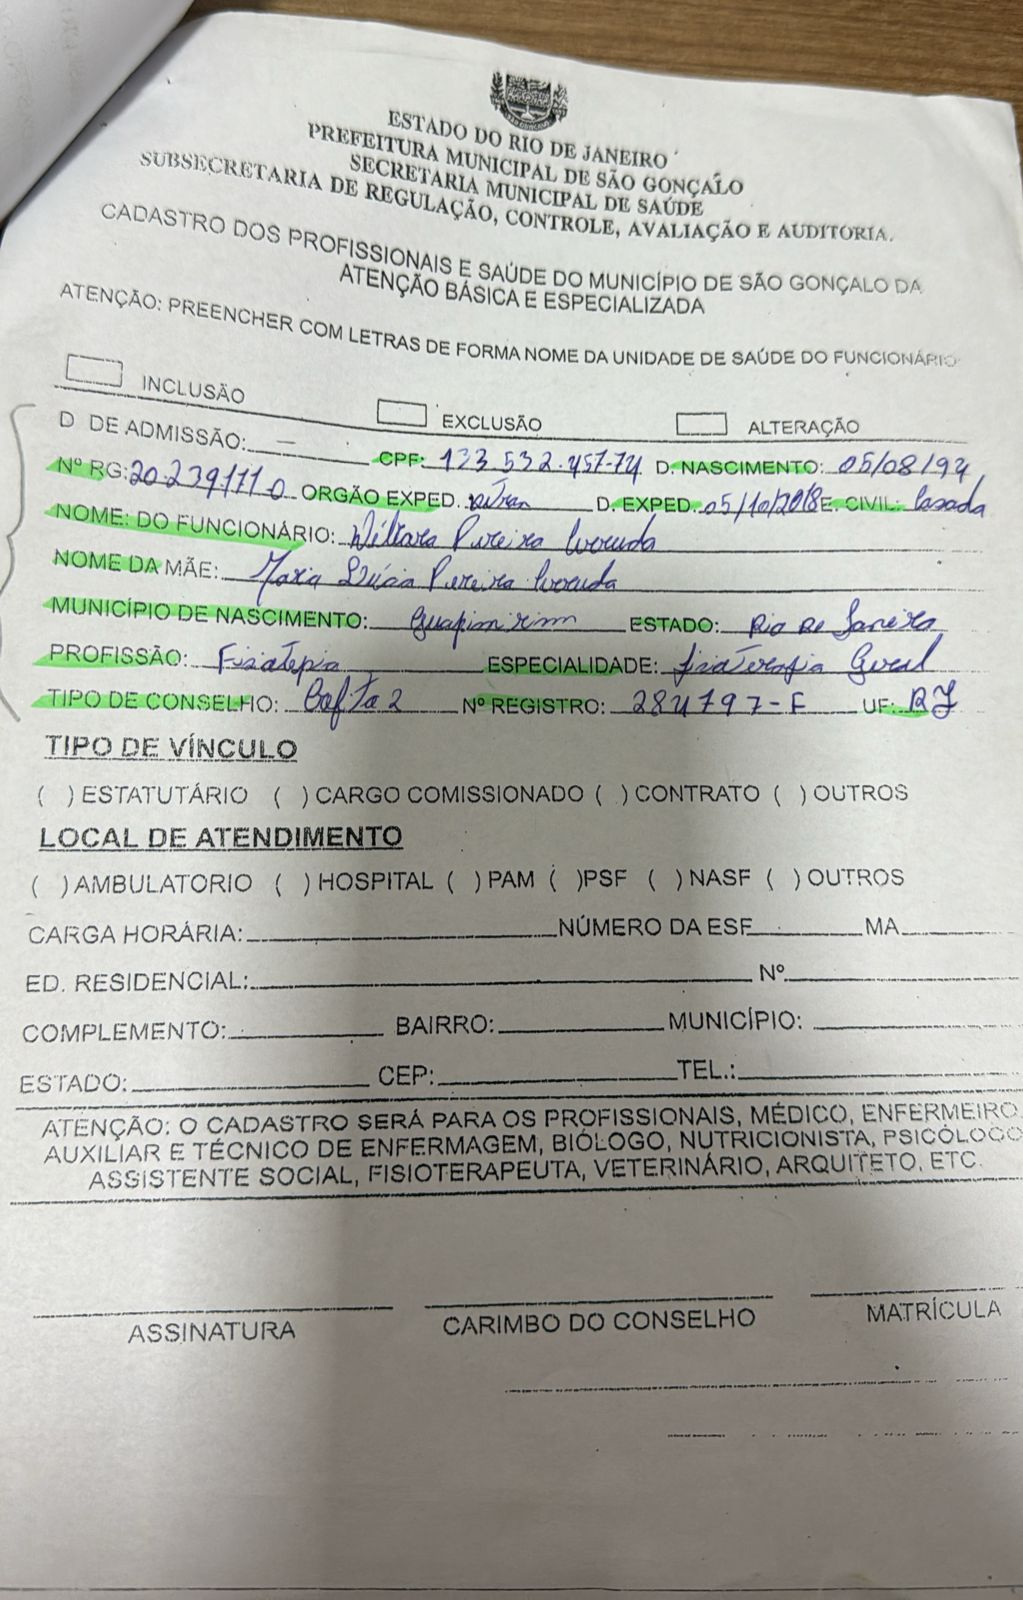 ESTADO DO RIO DE JANEIRO
PREFEITURA MUNICIPAL DE SÃO GONÇALO
SECRETARIA MUNICIPAL DE SAÚDE
SUBSECRETARIA DE REGULAÇÃO, CONTROLE, AVALIAÇÃO E AUDITORIA.
CADASTRO DOS PROFISSIONAIS E SAÚDE DO MUNICÍPIO DE SÃO GONÇALO DA
ATENÇÃO BÁSICA E ESPECIALIZADA
ATENÇÃO: PREENCHER COM LETRAS DE FORMA NOME DA UNIDADE DE SAÚDE DO FUNCIONÁRIO
INCLUSÃO EXCLUSÃO ALTERAÇÃO
D DE ADMISSÃO: — CPF: 133 532.457-74 D. NASCIMENTO: 05/08/94
Nº RG: 20.239111-0 ORGÃO EXPED. Detran D. EXPED. 05/10/2018 E. CIVIL: Casada
NOME: DO FUNCIONÁRIO: Pereira
NOME DA MÃE: Maria Lúcia Pereira
MUNICÍPIO DE NASCIMENTO: Guapimirim ESTADO: Rio de Janeiro
PROFISSÃO: ESPECIALIDADE: fisioterapia Geral
TIPO DE CONSELHO: Nº REGISTRO: 284797-F UF: RJ
TIPO DE VÍNCULO
( ) ESTATUTÁRIO ( ) CARGO COMISSIONADO ( ) CONTRATO ( ) OUTROS
LOCAL DE ATENDIMENTO
( ) AMBULATORIO ( ) HOSPITAL ( ) PAM ( )PSF ( ) NASF ( ) OUTROS
CARGA HORÁRIA: NÚMERO DA ESF MA
ED. RESIDENCIAL: Nº
COMPLEMENTO: BAIRRO: MUNICÍPIO:
ESTADO: CEP: TEL.:
ATENÇÃO: O CADASTRO SERÁ PARA OS PROFISSIONAIS, MÉDICO, ENFERMEIRO
AUXILIAR E TÉCNICO DE ENFERMAGEM, BIÓLOGO, NUTRICIONISTA, PSICÓLOGO
ASSISTENTE SOCIAL, FISIOTERAPEUTA, VETERINÁRIO, ARQUITETO, ETC.
ASSINATURA CARIMBO DO CONSELHO MATRÍCULA